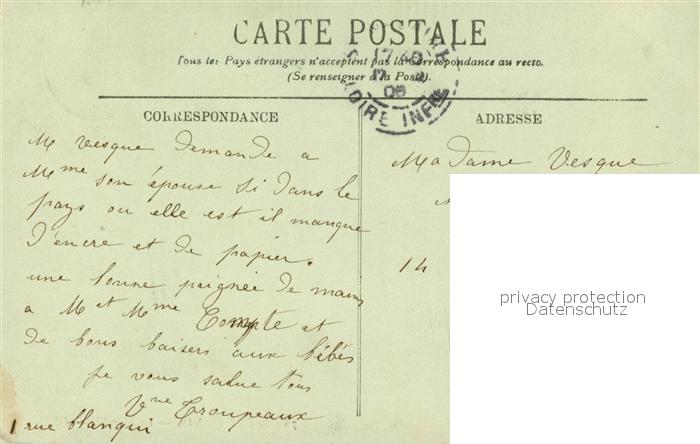 CARTE POSTALE
Tous les Pays étrangers n'acceptent pas la Correspondance au recto.
(Se renseigner à la Poste).
17 40
17
06
LOIRE INFRE
CORRESPONDANCE
M Vesque demande a
Mme son épouse si dans le
pays ou elle est il manque
d'encre et de papier.
une bonne poignée de mains
a M et Mme Compte et
de bons baisers aux bébés
je vous salue tous
Vve Troupeaux
1 rue blanqui
ADRESSE
Madame Vesque
14
privacy protection
Datenschutz